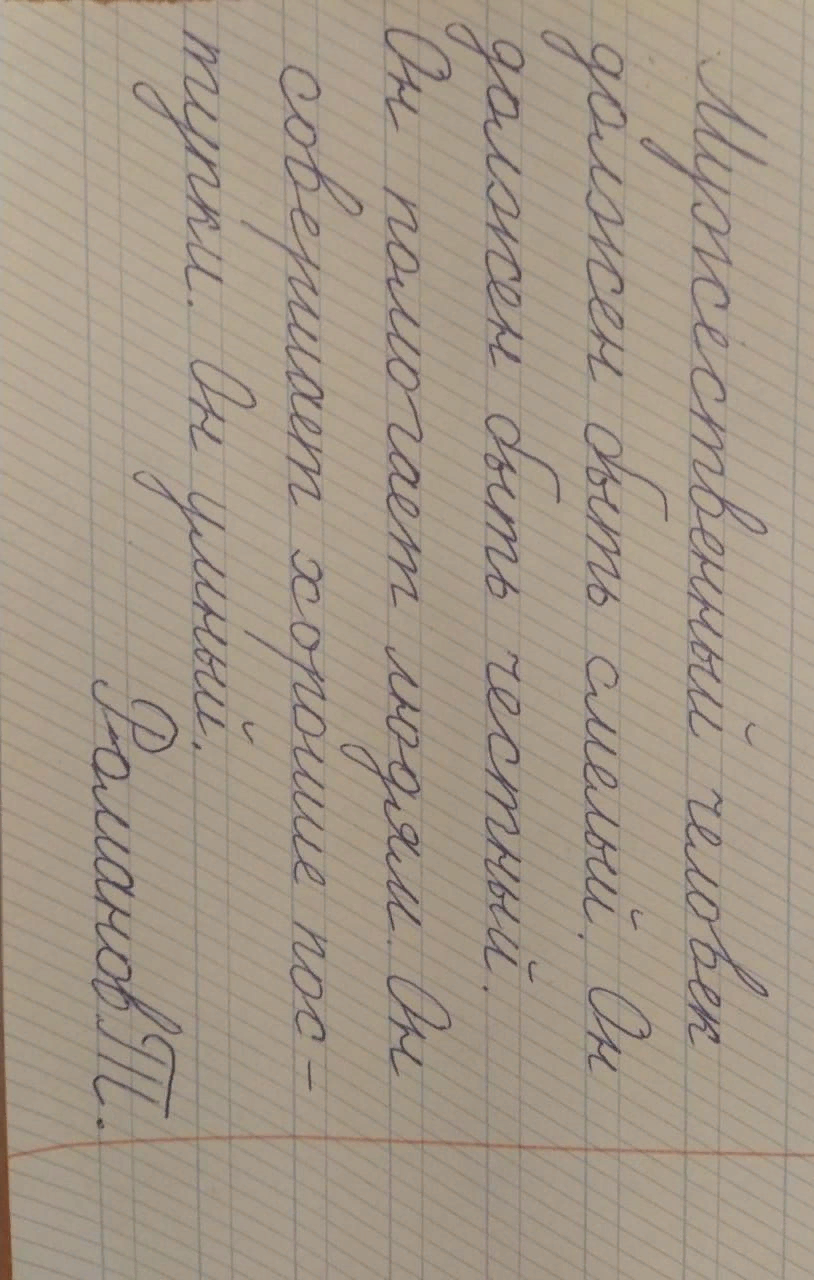 Мужественный человек
должен быть смелый. Он
должен быть честный.
Он помогает людям. Он
совершает хорошие пос-
тупки. Он умный.
Романов Т.